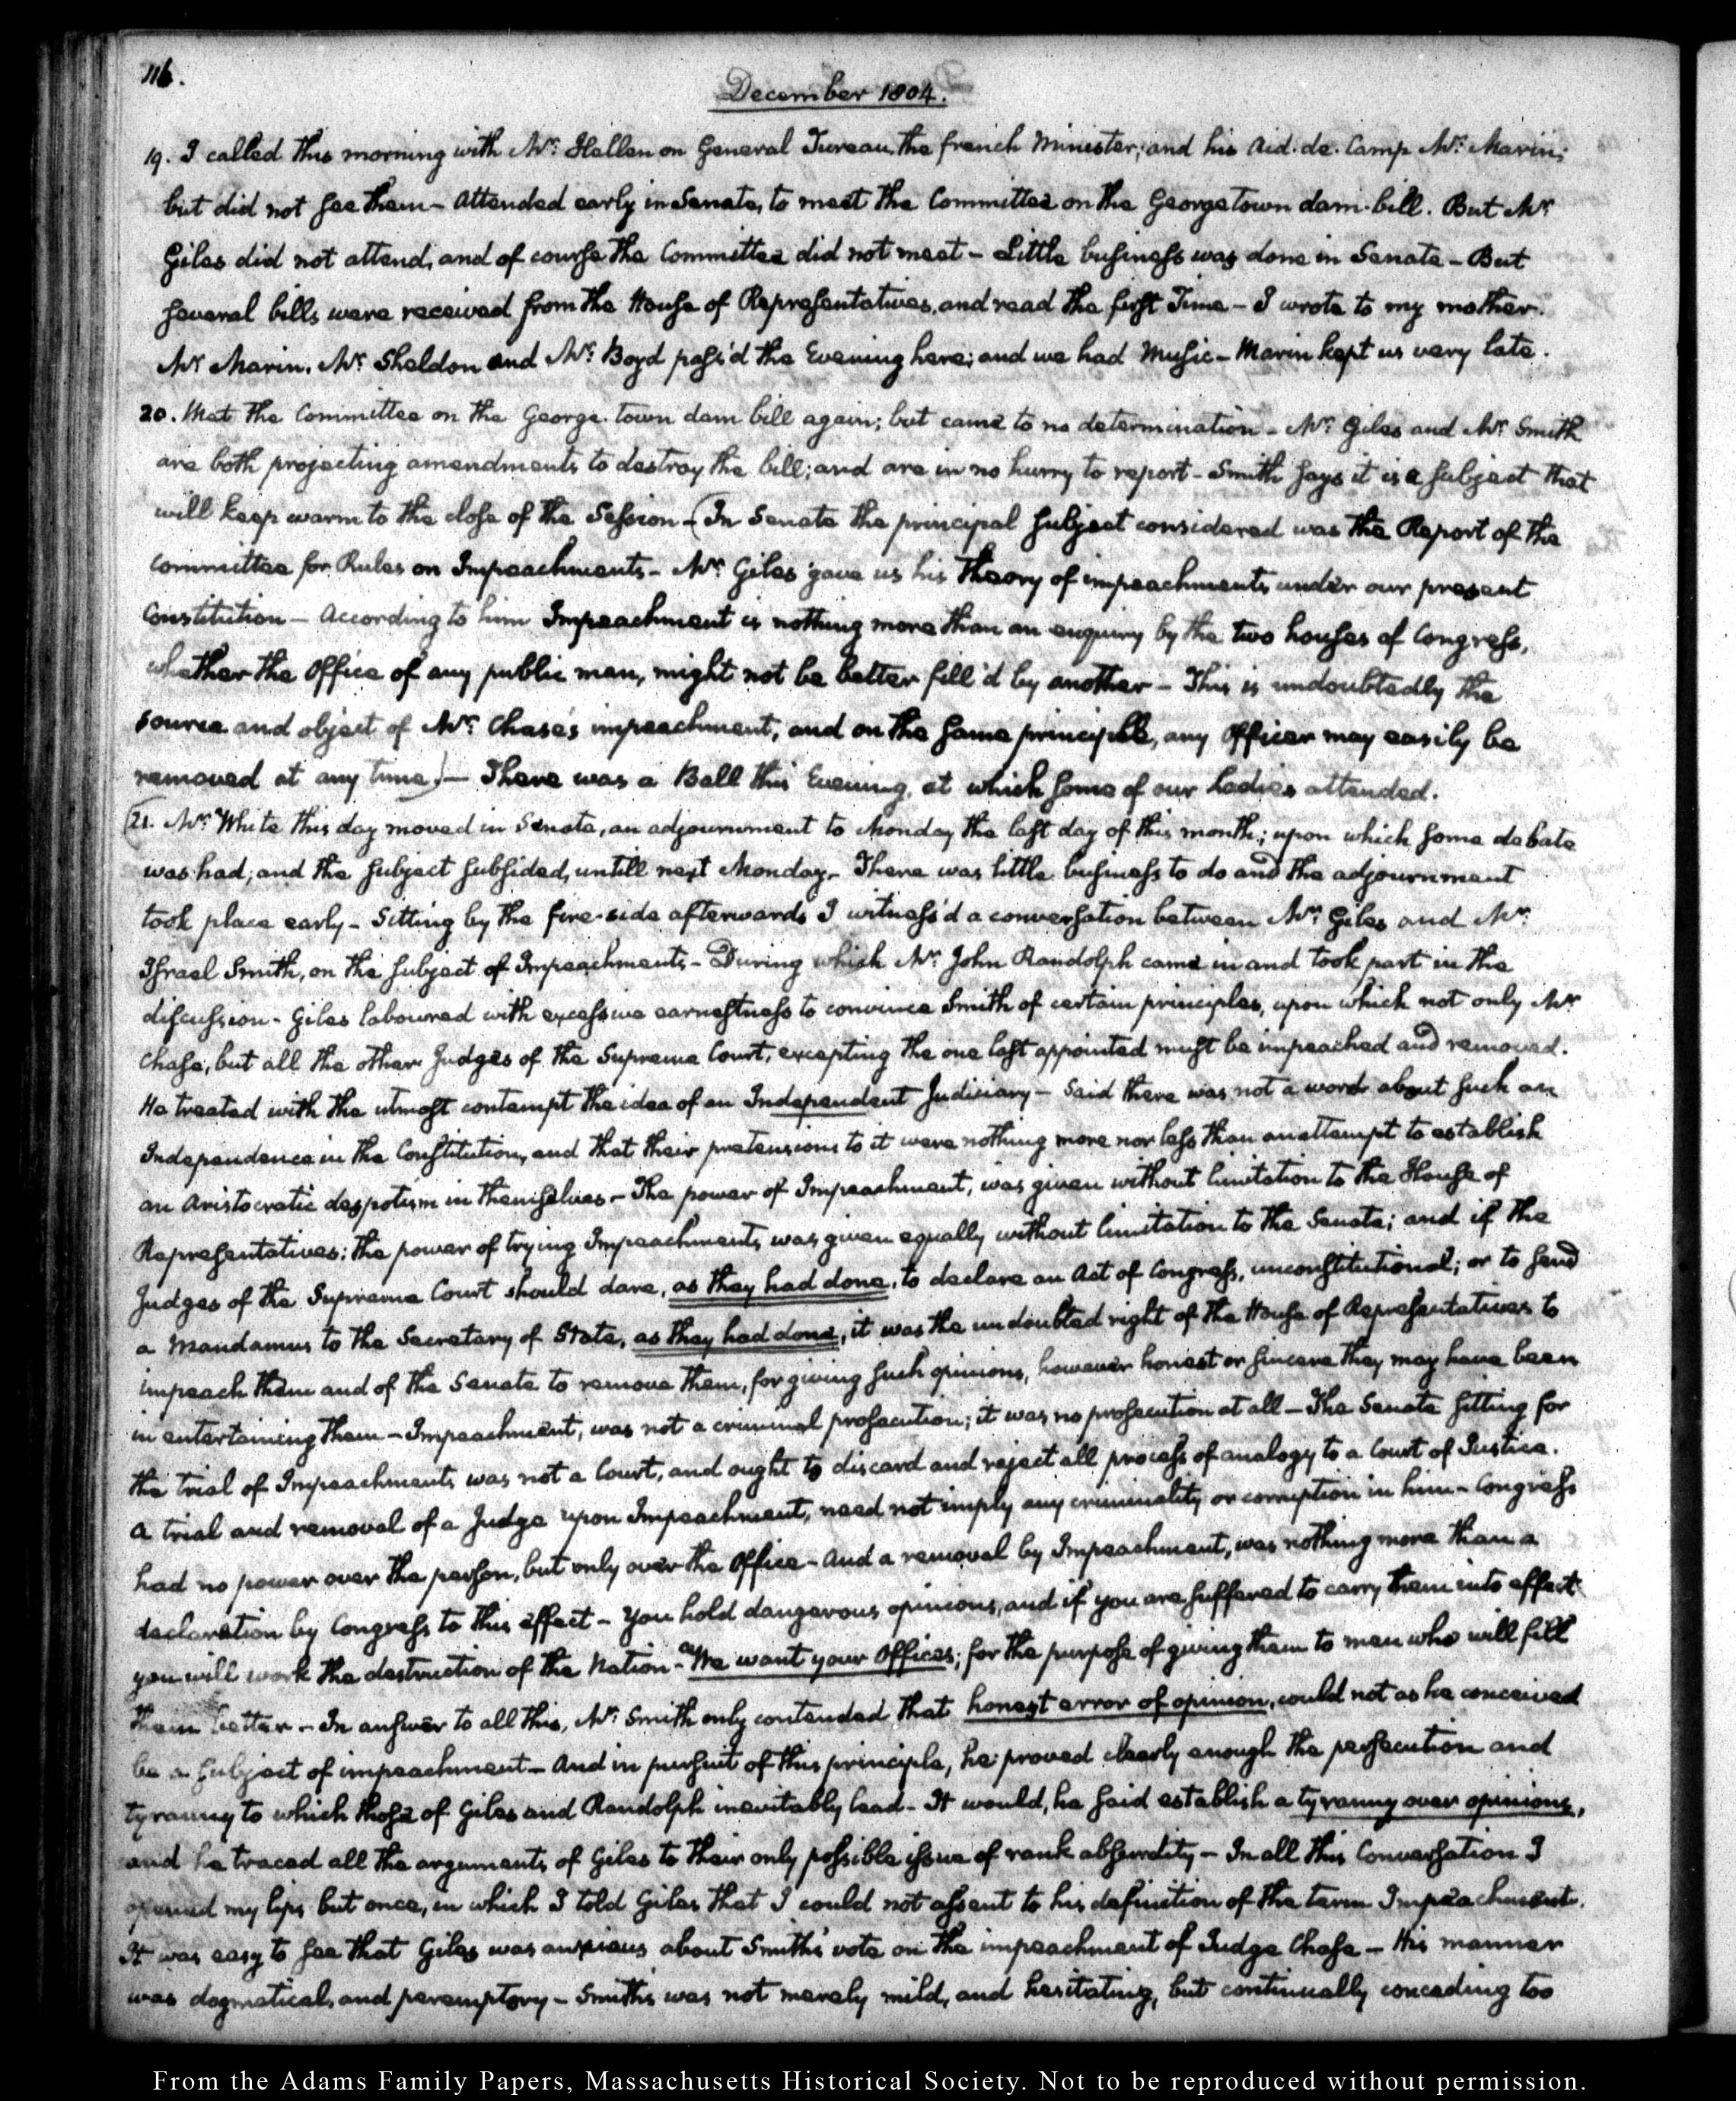 116.
December 1804.
19. I called this morning with Mr: Hellen on General Tureau, the french Minister; and his Aid. de. Camp Mr: Marin;
but did not see them — Attended early in Senate, to meet the Committee on the Georgetown dam-bill. But Mr
Giles did not attend, and of course the Committee did not meet — Little business was done in Senate — But
several bills were received from the House of Representatives, and read the first Time — I wrote to my mother.
Mr Marin, Mr: Sheldon and Mr: Boyd pass'd the Evening here; and we had Music — Marin kept us very late.
20. Met the Committee on the George town dam bill again; but came to no determination — Mr: Giles and Mr: Smith
are both projecting amendments to destroy the bill; and are in no hurry to report — Smith says it is a subject that
will keep warm to the close of the Session — (In Senate the principal subject considered was the Report of the
Committee for Rules on Impeachments — Mr: Giles gave us his theory of impeachments under our present
Constitution — According to him Impeachment is nothing more than an enquiry by the two houses of Congress,
whether the Office of any public man, might not be better fill'd by another — This is undoubtedly the
source and object of Mr: Chase's impeachment, and on the same principle, any Officer may easily be
removed at any time.) — There was a Ball this Evening, at which some of our Ladies attended.
(21. Mr: White this day moved in Senate, an adjournment to Monday the last day of this month; upon which some debate
was had; and the subject subsided, untill next Monday — There was little business to do and the adjournment
took place early — Sitting by the fire-side afterwards I witness'd a conversation between Mr: Giles and Mr:
Israel Smith, on the subject of Impeachments — During which Mr: John Randolph came in and took part in the
discussion — Giles laboured with excessive earnestness to convince Smith of certain principles, upon which not only Mr
Chase, but all the other Judges of the Supreme Court, excepting the one last appointed must be impeached and removed.
He treated with the utmost contempt the idea of an Independent Judiciary — Said there was not a word about such an
Independence in the Constitution, and that their pretensions to it were nothing more nor less than an attempt to establish
an Aristocratic despotism in themselves — The power of Impeachment, was given without limitation to the House of
Representatives; the power of trying Impeachments was given equally without limitation to the Senate; and if the
Judges of the Supreme Court should dare, as they had done, to declare an Act of Congress, unconstitutional; or to send
a Mandamus to the Secretary of State, as they had done, it was the undoubted right of the House of Representatives to
impeach them and of the Senate to remove them, for giving such opinions, however honest or sincere they may have been
in entertaining them — Impeachment, was not a criminal prosecution; it was no prosecution at all — The Senate sitting for
the trial of Impeachments was not a Court, and ought to discard and reject all process of analogy to a Court of Justice.
A trial and removal of a Judge upon Impeachment, need not imply any criminality or corruption in him — Congress
had no power over the person, but only over the Office — And a removal by Impeachment, was nothing more than a
declaration by Congress to this effect — You hold dangerous opinions, and if you are suffered to carry them into effect
you will work the destruction of the Nation — We want your Offices; for the purpose of giving them to men who will fill
them better — In answer to all this, Mr: Smith only contended that honest error of opinion, could not as he conceived
be a subject of impeachment — And in pursuit of this principle, he proved clearly enough the persecution and
tyranny to which those of Giles and Randolph inevitably lead — It would, he said establish a tyranny over opinions,
and he traced all the arguments of Giles to their only possible issue of rank absurdity — In all this Conversation I
opened my lips but once, in which I told Giles that I could not assent to his definition of the term Impeachment.
It was easy to see that Giles was anxious about Smith's vote on the impeachment of Judge Chase — His manner
was dogmatical, and peremptory — Smith's was not merely mild, and hesitating, but continually conceding too
From the Adams Family Papers, Massachusetts Historical Society. Not to be reproduced without permission.